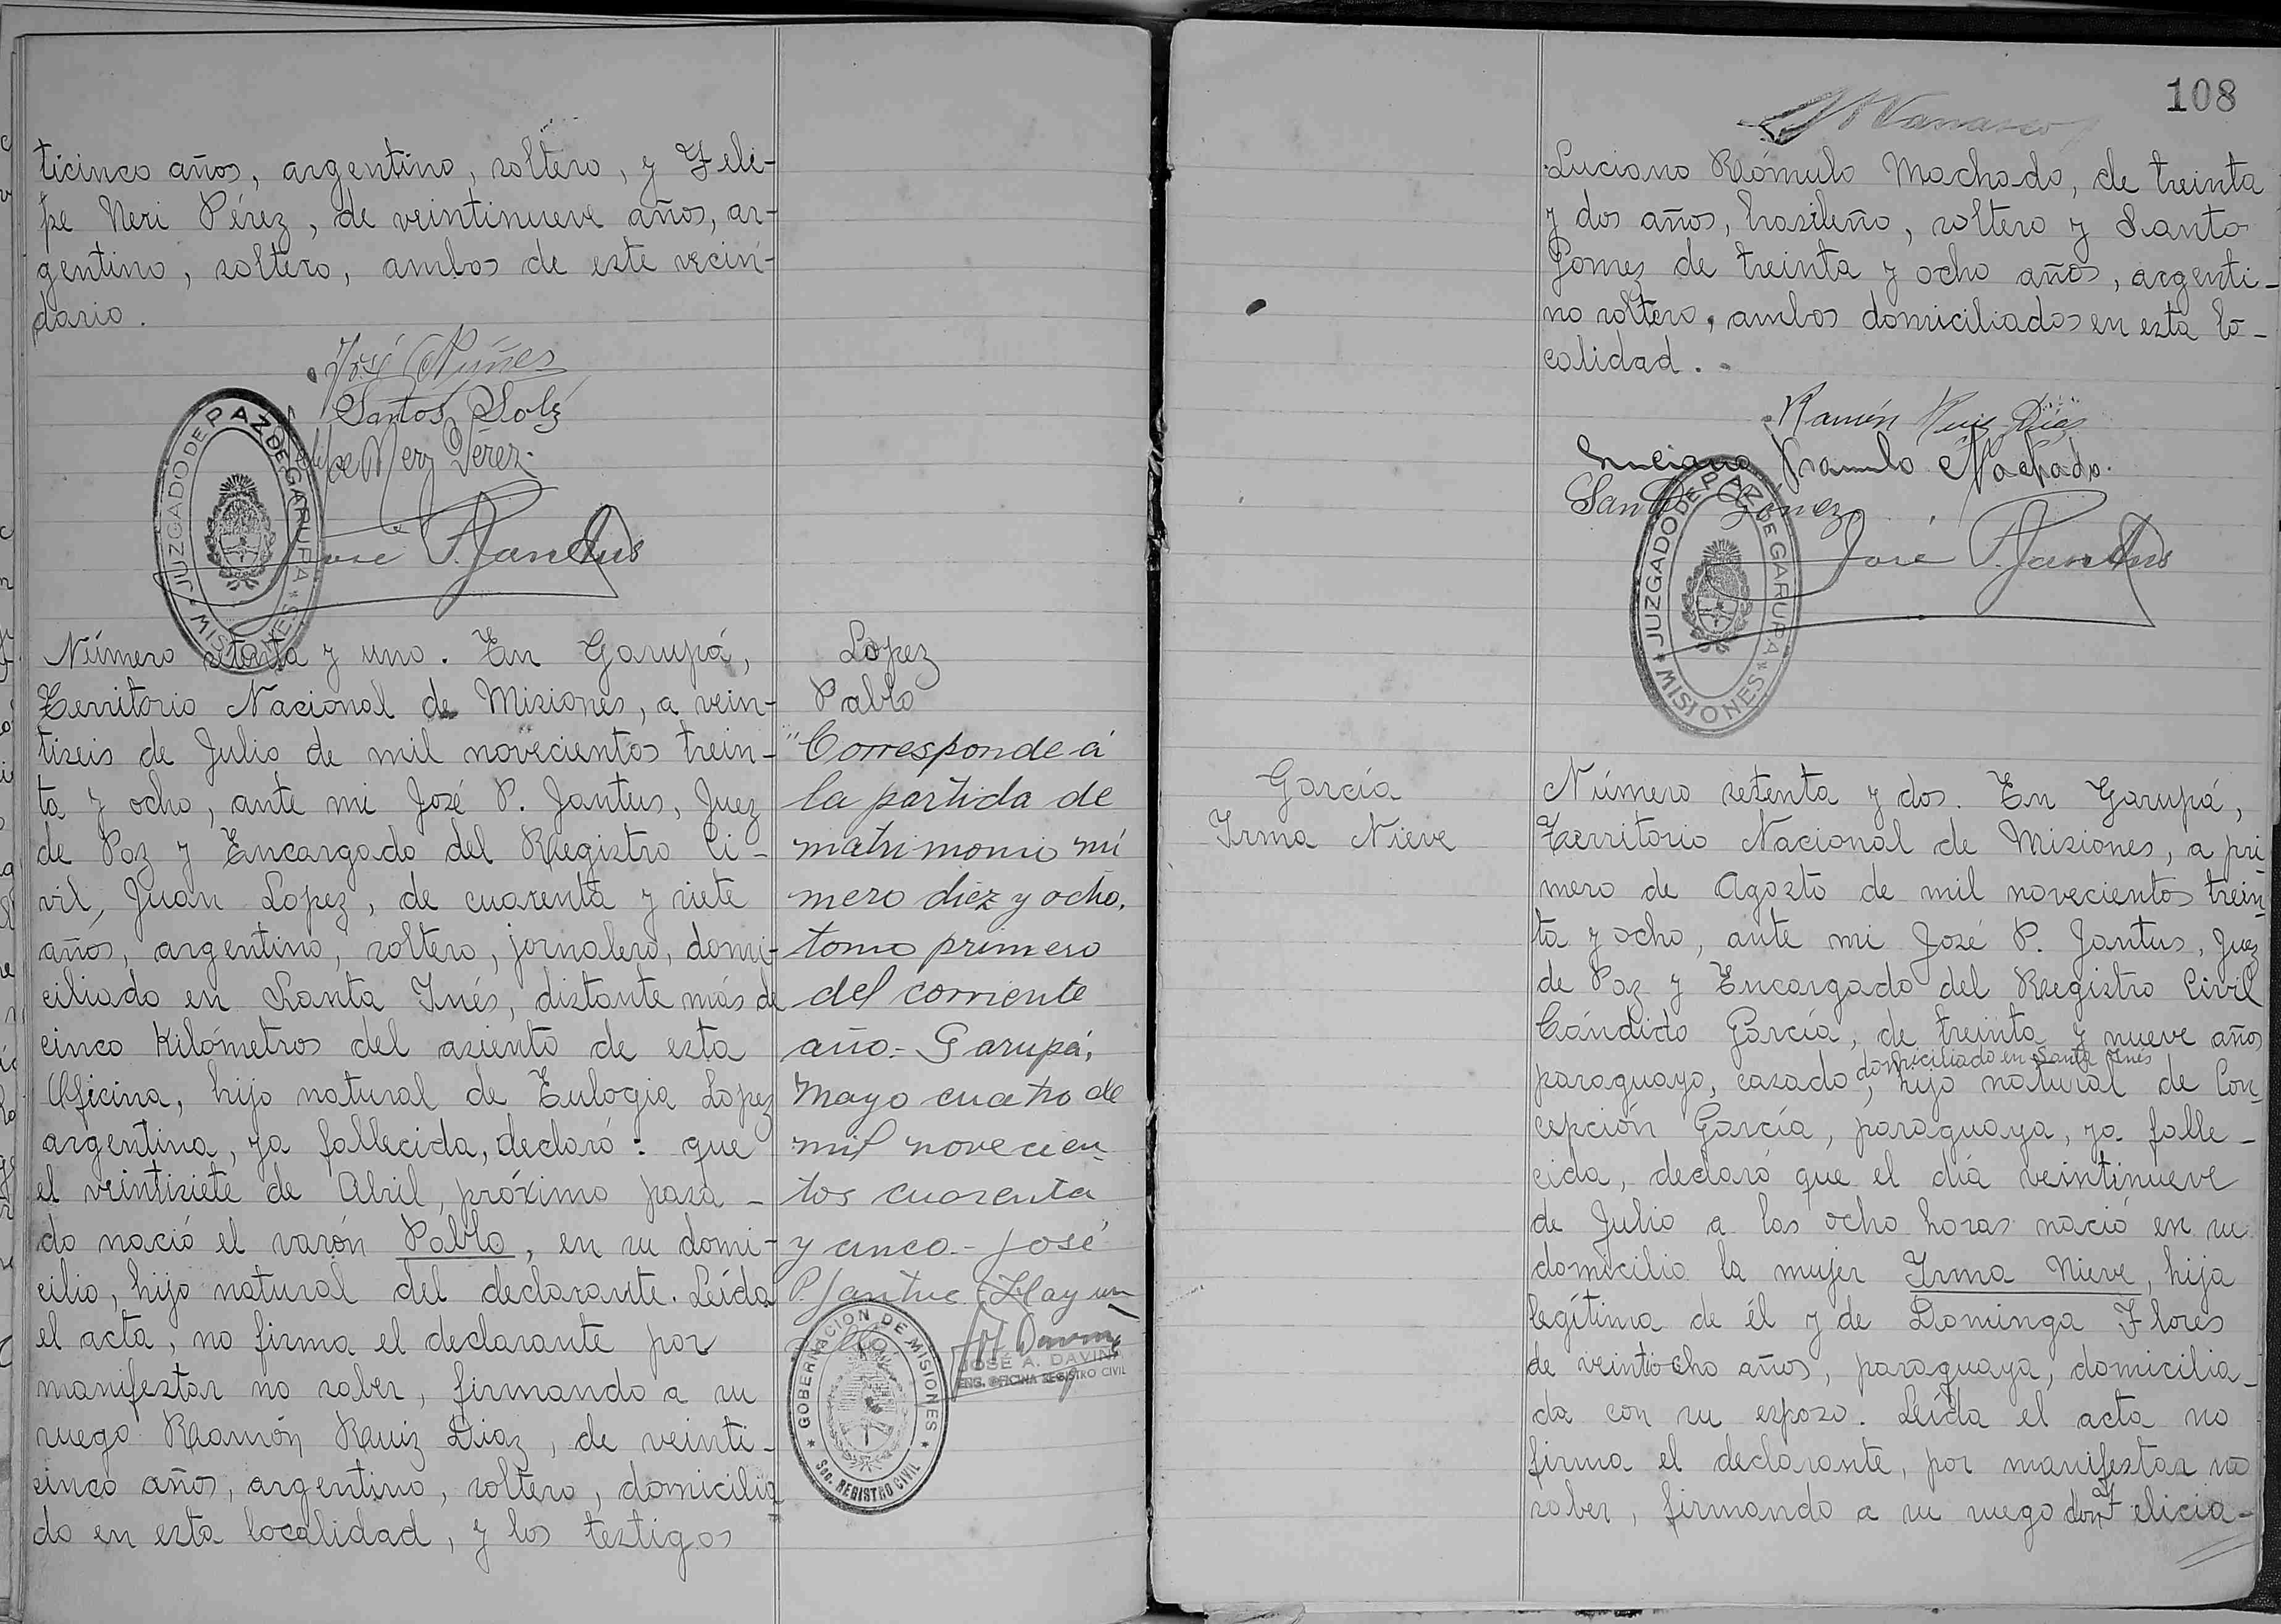 ticinco años, argentino, soltero, y Feli-
pe Neri Pérez, de veintinueve años, ar-
gentino, soltero, ambos de este vecin-
dario.
José Núñez
Santos Solis
Felipe Nery Pérez
JUZGADO DE PAZ DE GARUPA
* MISIONES *
José P. Jantus
Número setenta y uno. En Garupá,
Territorio Nacional de Misiones, a vein-
tiseis de Julio de mil novecientos trein-
ta y ocho, ante mi José P. Jantus, Juez
de Paz y Encargado del Registro Ci-
vil, Juan Lopez, de cuarenta y siete
años, argentino, soltero, jornalero, domi-
ciliado en Santa Inés, distante más de
cinco Kilómetros del asiento de esta
Oficina, hijo natural de Eulogia Lopez
argentina, ya fallecida, declaró: que
el veintisiete de Abril, próximo pasa-
do nació el varón Pablo, en su domi-
cilio, hijo natural del declarante. Leída
el acta, no firma el declarante por
manifestar no saber, firmando a su
ruego Ramón Ruiz Diaz, de veinti-
cinco años, argentino, soltero, domicilia
do en esta localidad, y los testigos
Lopez
Pablo
"Corresponde á
la partida de
matrimonio nú
mero diez y ocho,
tomo primero
del corriente
año.- Garupá,
Mayo cuatro de
mil novecien
tos cuarenta
y cinco.- José
P. Jantus (Hay un
sello)
GOBERNACION DE MISIONES
* Sec. REGISTRO CIVIL *
JOSÉ A. DAVIÑA
ENC. OFICINA REGISTRO CIVIL
108
Luciano Rómulo Machado, de treinta
y dos años, brasileño, soltero y Santo
Gomez de treinta y ocho años, argenti-
no soltero, ambos domiciliados en esta lo-
calidad.
Ramón Ruiz Díaz
Luciano Romulo Machado.
Santo Gómez
JUZGADO DE PAZ DE GARUPA
* MISIONES *
José P. Jantus
García
Irma Nieve
Número setenta y dos. En Garupá,
Territorio Nacional de Misiones, a pri
mero de Agosto de mil novecientos trein-
ta y ocho, ante mi José P. Jantus, Juez
de Paz y Encargado del Registro Civil
Cándido García, de treinta y nueve años
domiciliado en Santa Inés
paraguayo, casado, hijo natural de Con-
cepción García, paraguaya, ya falle-
cida, declaró que el día veintinueve
de Julio a las ocho horas nació en su
domicilio la mujer Irma Nieve, hija
legítima de él y de Dominga Flores
de veintiocho años, paraguaya, domicilia-
da con su esposo. Leída el acta no
firma el declarante, por manifestar no
saber, firmando a su ruego don Felicia-